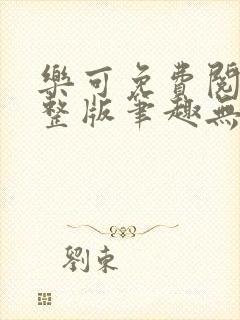 樂可免費閱
整版筆趣無
劉東